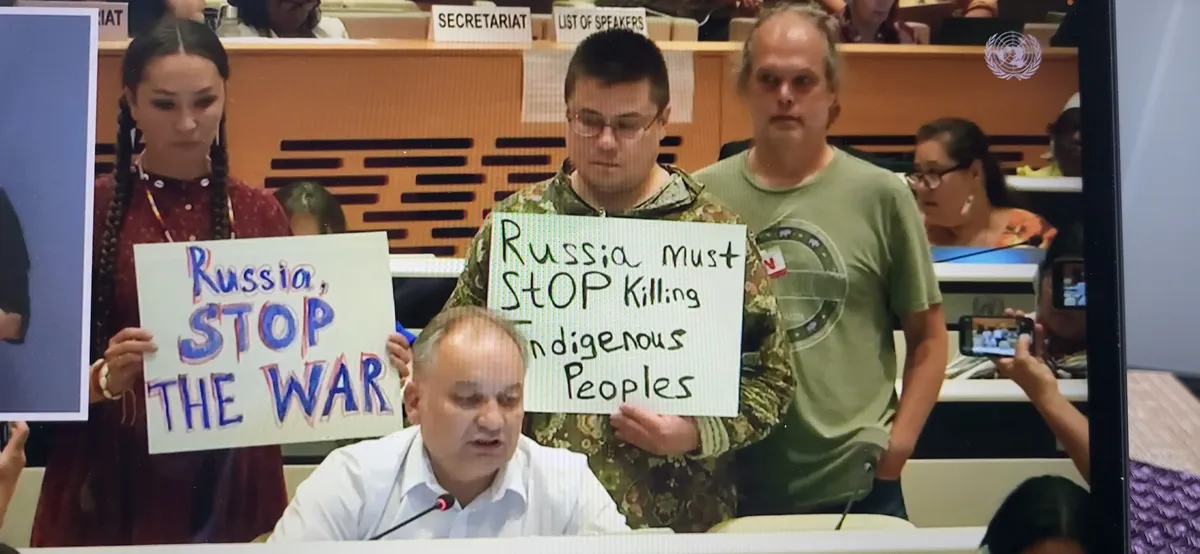 RIAT
SECRETARIAT
LIST OF SPEAKERS
Russia,
STOP
THE WAR
Russia must
STOP Killing
Indigenous
Peoples